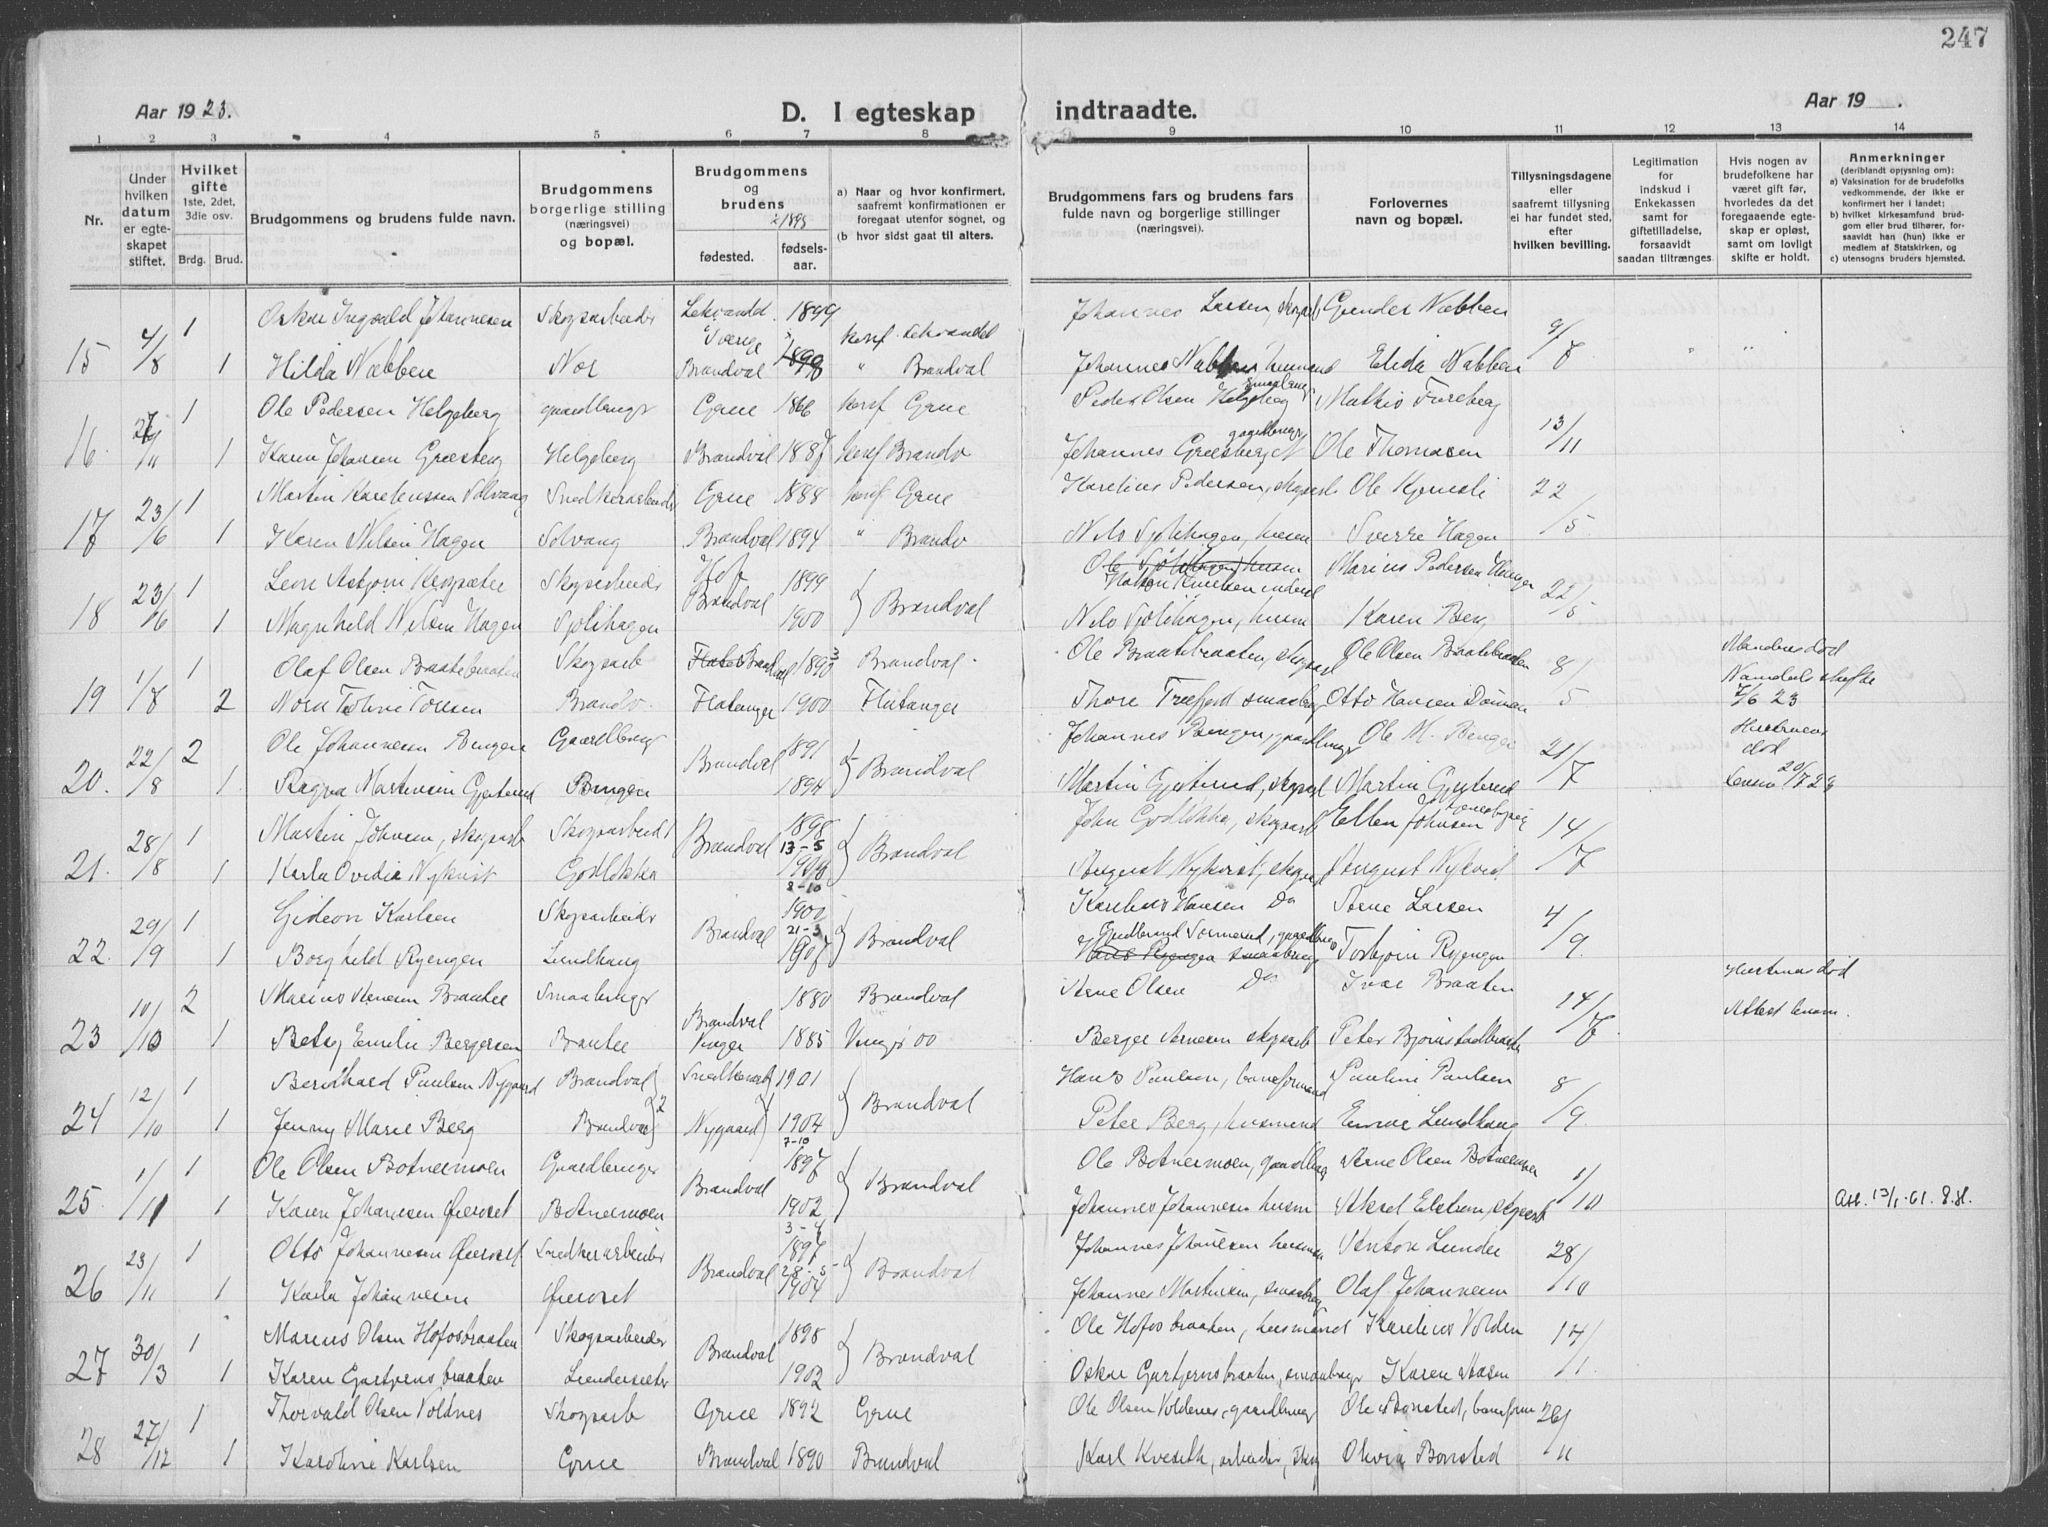 247
Aar 1923.
D. I egteskap indtraadte.
Aar 19 .
1 2 3 4 5 6 7 8 9 10 11 12 13 14
Nr.
Under hvilken datum er egteskapet stiftet.
Hvilket gifte 1ste, 2det, 3die osv.
Brdg. Brud.
Brudgommens og brudens fulde navn.
Brudgommens borgerlige stilling (næringsvei) og bopæl.
Brudgommens og brudens
fødested. fødselsaar.
a) Naar og hvor konfirmert, saafremt konfirmationen er foregaat utenfor sognet, og
(b hvor sidst gaat til alters.
Brudgommens fars og brudens fars fulde navn og borgerlige stillinger (næringsvei).
Forlovernes navn og bopæl.
Tillysningsdagene eller saafremt tillysning ei har fundet sted, efter hvilken bevilling.
Legitimation for indskud i Enkekassen samt for giftetilladelse, forsaavidt saadan tiltrænges
Hvis nogen av brudefolkene har været gift før, hvorledes da det foregaaende egteskap er opløst, samt om lovligt skifte er holdt.
Anmerkninger (deriblandt opjysning om):
a) Vaksination for de brudefolks vedkommende, der ikke er konfirmert her i landet;
b) hvilket kirkesamfund brudgom eller brud tilhører, forsaavidt han (hun) ikke er medlem af Statskirken, og
c) utensogns bruders hjemsted.
15 4/8 1 Oskar Ingvald Johannesen Skogsarbeider 1899 Johannes Larsen, skogsarb Gunder Nabben 9/7
1 Hilda Nabben Nor Brandval 1898 " Brandval Johannes Nabben husmand Elida Nabben
16. 1 Ole Pedersen Helgeberg gaardbruger Grue 1866 konf Grue Peder Olsen Helgeberg Mathis Fureberg 13/11
1 Karen Johansen Greesberg Helgeberg Brandval 1887 konf Brandv Johannes Greesberg gaardbruger Ole Thomasen
17 23/6 1 Martin Kareliussen Solvang Snedkerarbeider Grue 1888 konf Grue Karelius Pedersen, skogsarb Ole Kjernsli 22/5
1 Karen Nilsen Hagen Solvang Brandval 1894 " Brandv Nils Sjølihagen, husm Sverre Hagen
18 23/6 1 Skogsarbeider Hof 1899 Brandval Marius Pedersen 22/5
1 Magnhild Nilsen Hagen Sjølihagen Brandval 1900 Nils Sjølihagen, husm Karen Berg
19 1/7 1 Olaf Olsen Braatebraaten Skogsarb Brandval 1893 Brandval Ole Braatebraaten, skogsarb Ole Olsen Braatebraaten 8/5 Mandens død
2 Nora Toline Toresen Brandv. Flatanger 1900 Flatanger Otto Hansen Namdals skifte 7/6 23
20. 22/8 2 Ole Johannesen Bingen Gaardbrug Brandval 1891 Brandval Johannes Bingen, gaardbruger Ole M. Bingen 21/7 Hustruens død
1 Ragna Martinsen Gjetsrud Bingen 1894 Martin Gjetsrud, skogsarb Martin Gjetsrud
21. 28/8 1 Martin Johnsen, skogsarb Skogsarbeid Brandval 1898 13-5 Brandval John Godlekka, skogsarb Ellen Johnsen 14/7
1 Karla Ovidia Nykvist Godlekka 8-10 August Nykvist, skogsarb August Nykvist
22. 29/9 1 Gideon Karlsen Skogsarbeider Brandval 1900 21-3 Brandval Karelius Hansen Do Arne Larsen 4/9
1 Borghild Ryengen Lundhaug 1907 Torbjørn Ryengen
23 10/10 2 Marius Arnesen Braatee Smaabruger Brandval 1880 Brandval Arne Olsen Do Ivar Braaten 14/7 Hustrues død
1 Betsy Emilie Bergersen Braatee Vinger 1885 Berger Arnesen skogsarb Attest
24 12/10 1 Bernhard Paulsen Nygaard Brandval Snedkerarb 1901 Brandval Hans Paulsen, baneformand Pauline Paulsen 8/9
1 Jenny Marie Berg Brandval Nygaard 1904 Peter Berg, husmand Emma Lundhaug
25. 1/11 1 Ole Olsen Botnermoen Gaardbruger Brandval 7-10 1897 Brandval Ole Botnermoen, gaardbrug Arne Olsen Botnermoen 1/10
1 Karen Johannesen Øieroset Botnermoen 1902 Johannes Johannesen husm Aksel Elstrøm, skogsarb Att. 13/1-61.
26 23/11 1 Otto Johannesen Øieroset Snedkerarbeider Brandval 3-4 1897 Brandval Johannes Johannesen husman Anton Lunder 28/10
1 Karla Johannesen Øieroset 28-5 1904 Johannes Martinsen, smaabrug Olaf Johannesen
27 30/3 1 Marius Olsen Hofosbraaten Skogsarbeider Brandval 1898 Brandval Ole Hofosbraaten, husmand Karelius Volden 14/1
1 Karen Gartjernsbraaten Lundersæter 1902 Oskar Gartjernsbraaten, smaabruger Karen Aasen
28 27/12 1 Thorvald Olsen Voldnes Skogsarb Grue 1892 Grue Ole Olsen Voldenes, gaardbruger Ole Bonsted, baneform 26/11
1 Karoline Karlsen Grue Brandval 1890 Brandval Karl Kveseth, arbeider Olivia Bonsted